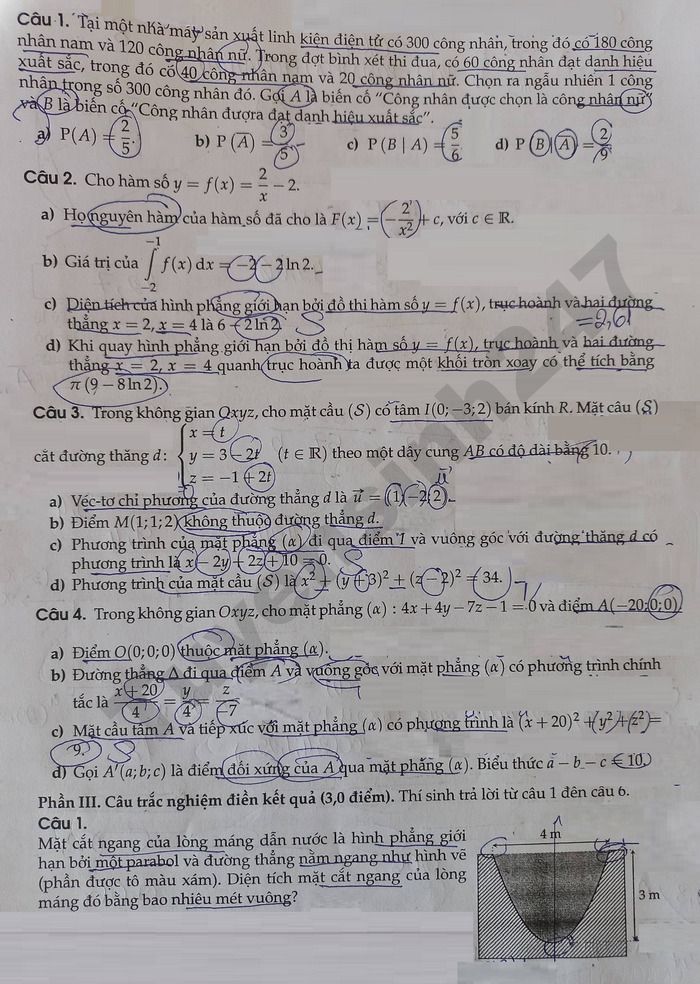 Câu 1. Tại một nhà máy sản xuất linh kiện điện tử có 300 công nhân, trong đó có 180 công
nhân nam và 120 công nhân nữ. Trong đợt bình xét thi đua, có 60 công nhân đạt danh hiệu
xuất sắc, trong đó có 40 công nhân nam và 20 công nhân nữ. Chọn ra ngẫu nhiên 1 công
nhân trong số 300 công nhân đó. Gọi A là biến cố "Công nhân được chọn là công nhân nữ"
và B là biến cố "Công nhân đượra đạt danh hiệu xuất sắc".
a) P(A) = 2/5. b) P(A̅) = 3/5 c) P(B | A) = 5/6 d) P(B | A̅) = 2/9
Câu 2. Cho hàm số y = f(x) = 2/x − 2.
a) Họ nguyên hàm của hàm số đã cho là F(x) = (−2/x²) + c, với c ∈ ℝ.
b) Giá trị của ∫_{-2}^{-1} f(x) dx = −2 − 2 ln 2.
c) Diện tích của hình phẳng giới hạn bởi đồ thi hàm số y = f(x), trục hoành và hai đường
thẳng x = 2, x = 4 là 6 − 2 ln 2. S = 2,61
d) Khi quay hình phẳng giới hạn bởi đồ thị hàm số y = f(x), trục hoành và hai đường
thẳng x = 2, x = 4 quanh trục hoành ta được một khối tròn xoay có thể tích bằng
π(9 − 8 ln 2).
Câu 3. Trong không gian Oxyz, cho mặt cầu (S) có tâm I(0; −3; 2) bán kính R. Mặt cầu (S)
cắt đường thẳng d: { x = t
y = 3 − 2t (t ∈ ℝ) theo một dây cung AB có độ dài bằng 10.
z = −1 + 2t
a) Véc-tơ chỉ phương của đường thẳng d là u⃗ = (1; −2; 2). u⃗
b) Điểm M(1; 1; 2) không thuộc đường thẳng d.
c) Phương trình của mặt phẳng (α) đi qua điểm I và vuông góc với đường thẳng d có
phương trình là x − 2y + 2z + 10 = 0. S
d) Phương trình của mặt cầu (S) là x² + (y + 3)² + (z − 2)² = 34.
Câu 4. Trong không gian Oxyz, cho mặt phẳng (α) : 4x + 4y − 7z − 1 = 0 và điểm A(−20; 0; 0).
a) Điểm O(0; 0; 0) thuộc mặt phẳng (α).
b) Đường thẳng Δ đi qua điểm A và vuông góc với mặt phẳng (α) có phương trình chính
tắc là (x + 20)/4 = y/4 = z/−7
c) Mặt cầu tâm A và tiếp xúc với mặt phẳng (α) có phương trình là (x + 20)² + y² + z² =
9. S
d) Gọi A′(a; b; c) là điểm đối xứng của A qua mặt phẳng (α). Biểu thức a − b − c = 10.
Phần III. Câu trắc nghiệm điền kết quả (3,0 điểm). Thí sinh trả lời từ câu 1 đến câu 6.
Câu 1.
Mặt cắt ngang của lòng máng dẫn nước là hình phẳng giới
hạn bởi một parabol và đường thẳng nằm ngang như hình vẽ
(phần được tô màu xám). Diện tích mặt cắt ngang của lòng
máng đó bằng bao nhiêu mét vuông?
4 m
3 m